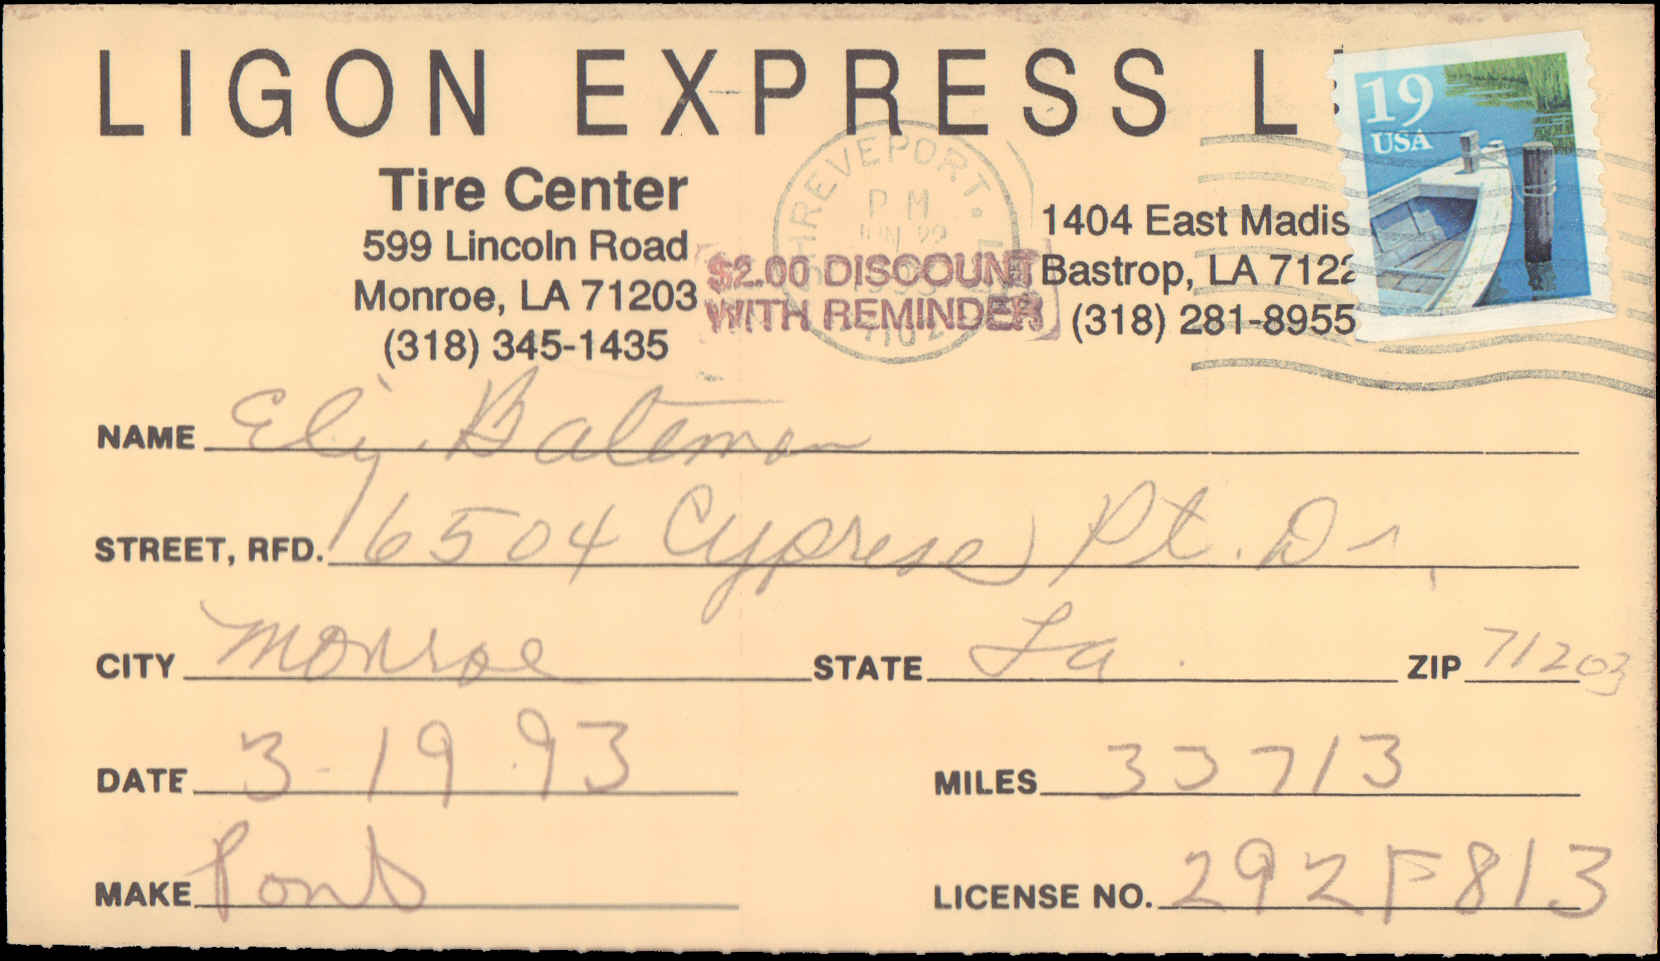 LIGON EXPRESS L
19
USA
Tire Center
599 Lincoln Road
Monroe, LA 71203
(318) 345-1435
SHREVEPORT,
PM
$2.00 DISCOUNT
WITH REMINDER
1404 East Madis
Bastrop, LA 7122
(318) 281-8955
NAME Eli Bateman
STREET, RFD. 6504 Cypress Pt. Dr.
CITY Monroe STATE La. ZIP 71203
DATE 3-19 93 MILES 33713
MAKE Pont LICENSE NO. 292F813